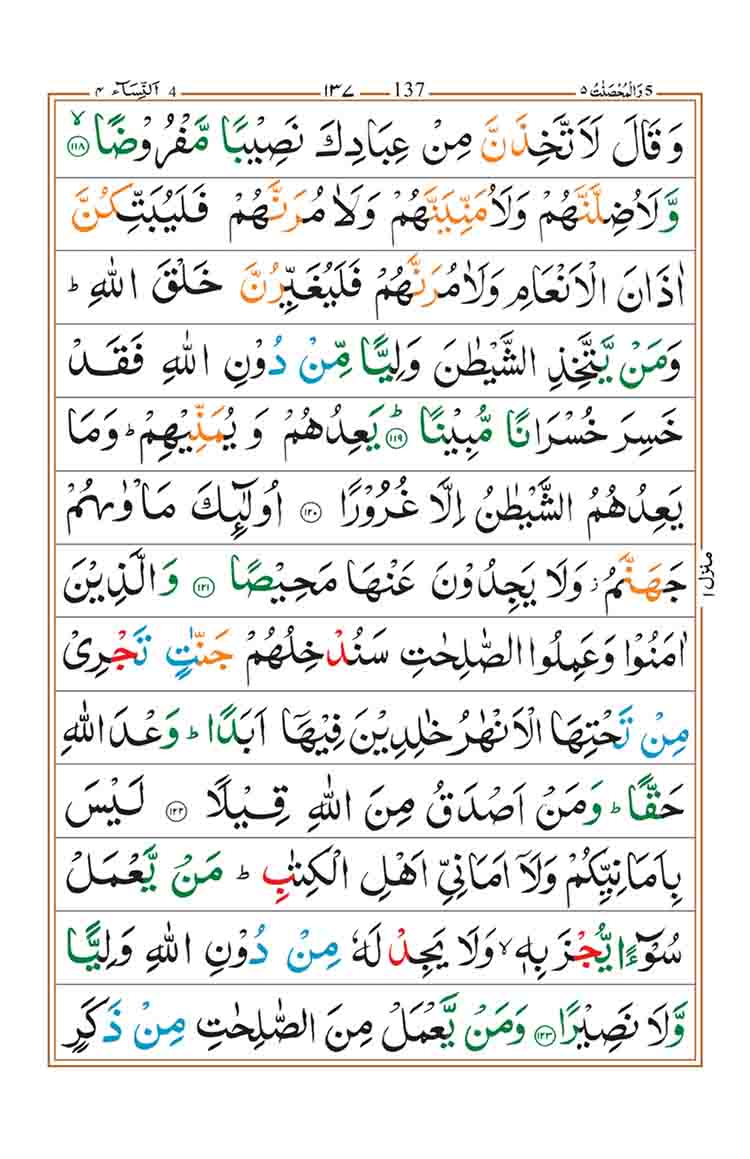 ٤ اَلنِّسَآء 4 ١٣٧ 137 وَالْمُحْصَنٰتُ ٥ 5
وَقَالَ لَاَتَّخِذَنَّ مِنْ عِبَادِكَ نَصِيْبًا مَّفْرُوْضًاۙ ﴿١١٨﴾
وَّلَاُضِلَّنَّهُمْ وَلَاُمَنِّيَنَّهُمْ وَلَاٰمُرَنَّهُمْ فَلَيُبَتِّكُنَّ
اٰذَانَ الْاَنْعَامِ وَلَاٰمُرَنَّهُمْ فَلَيُغَيِّرُنَّ خَلْقَ اللّٰهِ ؕ
وَمَنْ يَّتَّخِذِ الشَّيْطٰنَ وَلِيًّا مِّنْ دُوْنِ اللّٰهِ فَقَدْ
خَسِرَ خُسْرَانًا مُّبِيْنًا ؕ ﴿١١٩﴾ يَعِدُهُمْ وَيُمَنِّيْهِمْ ؕ وَمَا
يَعِدُهُمُ الشَّيْطٰنُ اِلَّا غُرُوْرًا ﴿١٢٠﴾ اُولٰٓئِكَ مَاْوٰىهُمْ
جَهَنَّمُ ؗ وَلَا يَجِدُوْنَ عَنْهَا مَحِيْصًا ﴿١٢١﴾ وَالَّذِيْنَ
اٰمَنُوْا وَعَمِلُوا الصّٰلِحٰتِ سَنُدْخِلُهُمْ جَنّٰتٍ تَجْرِىْ
مِنْ تَحْتِهَا الْاَنْهٰرُ خٰلِدِيْنَ فِيْهَاۤ اَبَدًا ؕ وَعْدَ اللّٰهِ
حَقًّا ؕ وَمَنْ اَصْدَقُ مِنَ اللّٰهِ قِيْلًا ﴿١٢٢﴾ لَيْسَ
بِاَمَانِيِّكُمْ وَلَاۤ اَمَانِىِّ اَهْلِ الْكِتٰبِ ؕ مَنْ يَّعْمَلْ
سُوْٓءًا يُّجْزَ بِهٖ ۙ وَلَا يَجِدْ لَهٗ مِنْ دُوْنِ اللّٰهِ وَلِيًّا
وَّلَا نَصِيْرًا ﴿١٢٣﴾ وَمَنْ يَّعْمَلْ مِنَ الصّٰلِحٰتِ مِنْ ذَكَرٍ
منزل ١